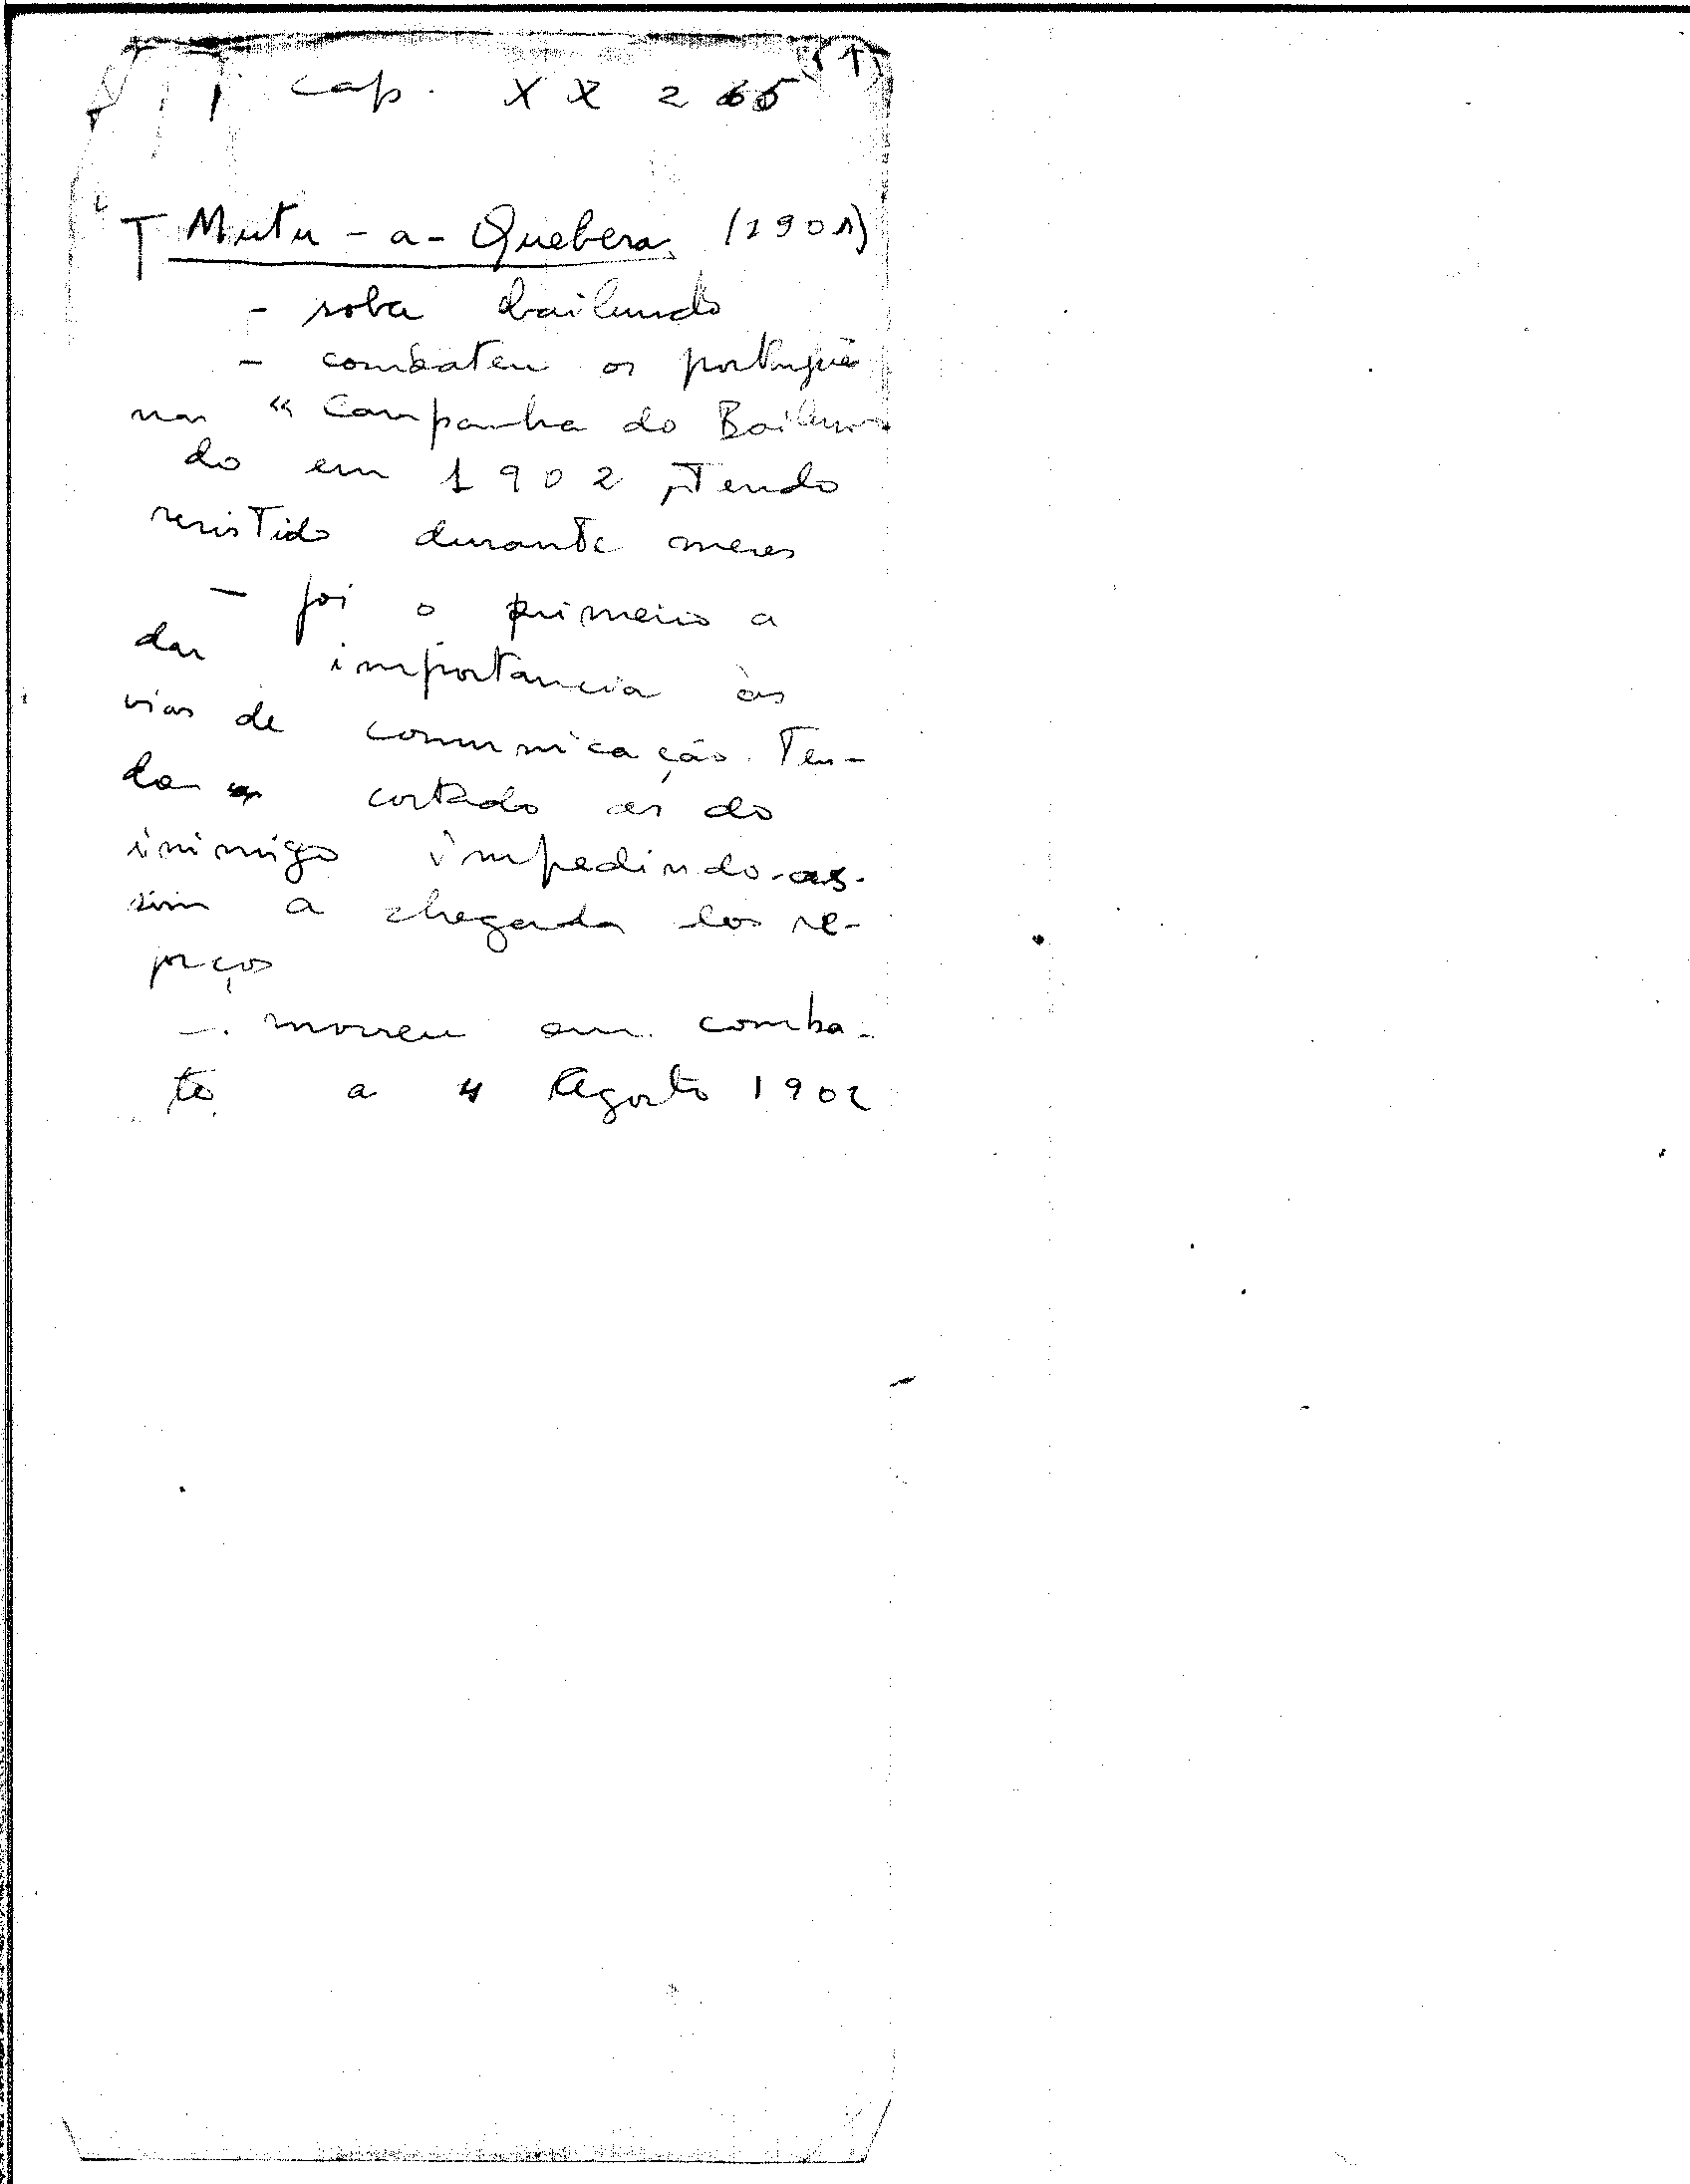 cap. XX 265
T Mutu-a-Quebera (1901)
- soba bailundo
- combateu os portuguê
na "Campanha do Bailun
do em 1902, Tendo
resistido durante meses
- foi o primeiro a
dar importancia às
vias de comunicação. Ten-
do cortado as do
inimigo impedindo-as-
sim a chegada dos re-
forços
- morreu em comba-
te a 4 Agosto 1902